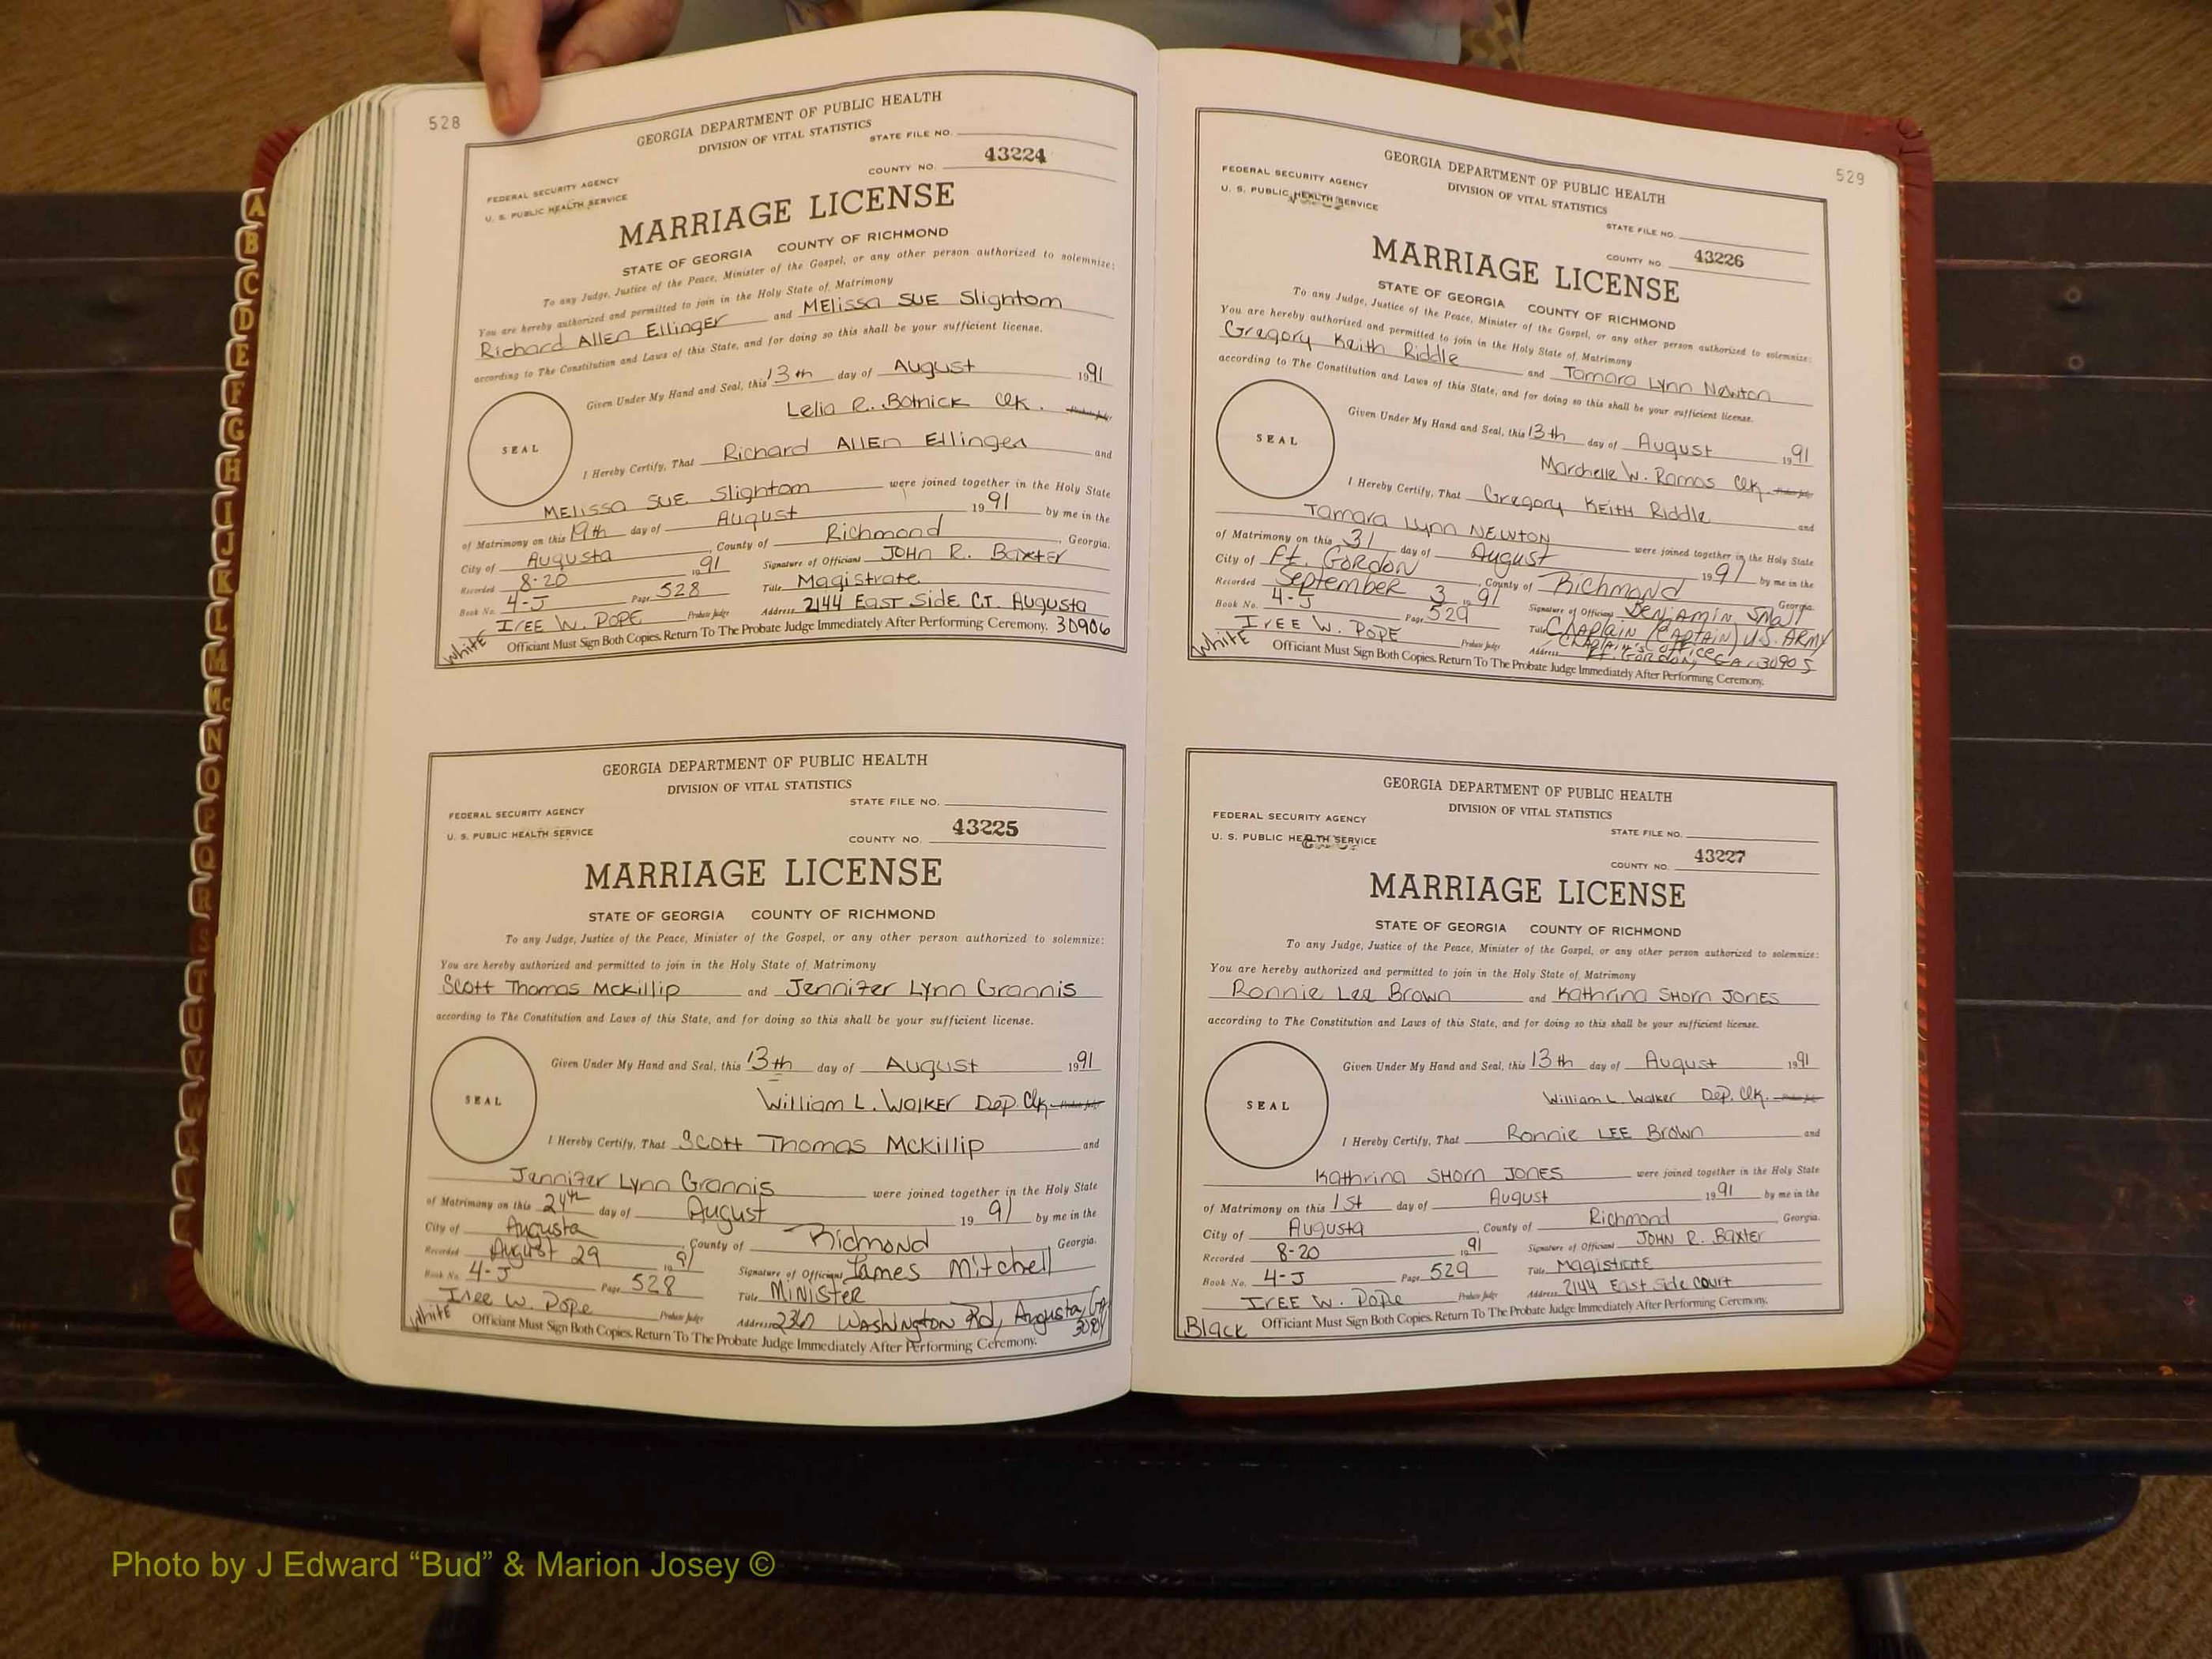 528
GEORGIA DEPARTMENT OF PUBLIC HEALTH
DIVISION OF VITAL STATISTICS
STATE FILE NO.
COUNTY NO. 43224
FEDERAL SECURITY AGENCY
U. S. PUBLIC HEALTH SERVICE
MARRIAGE LICENSE
STATE OF GEORGIA COUNTY OF RICHMOND
To any Judge, Justice of the Peace, Minister of the Gospel, or any other person authorized to solemnize:
You are hereby authorized and permitted to join in the Holy State of Matrimony
Richard Allen Ellinger and Melissa Sue Slightom
according to The Constitution and Laws of this State, and for doing so this shall be your sufficient license.
Given Under My Hand and Seal, this 13th day of August 1991
Lelia R. Botnick Clk. Probate Judge
SEAL
I Hereby Certify, That Richard Allen Ellinger and
Melissa Sue Slightom were joined together in the Holy State
of Matrimony on this 19th day of August 1991 by me in the
City of Augusta, County of Richmond, Georgia.
Recorded 8-20 1991 Signature of Officiant John R. Baxter
Book No. 4-J Page 528 Title Magistrate
Iree W. Pope Probate Judge Address 2144 East Side Ct. Augusta
White Officiant Must Sign Both Copies. Return To The Probate Judge Immediately After Performing Ceremony. 30906
GEORGIA DEPARTMENT OF PUBLIC HEALTH
DIVISION OF VITAL STATISTICS
STATE FILE NO.
FEDERAL SECURITY AGENCY
U. S. PUBLIC HEALTH SERVICE
COUNTY NO. 43225
MARRIAGE LICENSE
STATE OF GEORGIA COUNTY OF RICHMOND
To any Judge, Justice of the Peace, Minister of the Gospel, or any other person authorized to solemnize:
You are hereby authorized and permitted to join in the Holy State of Matrimony
Scott Thomas McKillip and Jennifer Lynn Grannis
according to The Constitution and Laws of this State, and for doing so this shall be your sufficient license.
Given Under My Hand and Seal, this 13th day of August 1991
William L. Walker Dep. Clk. Probate Judge
SEAL
I Hereby Certify, That Scott Thomas McKillip and
Jennifer Lynn Grannis were joined together in the Holy State
of Matrimony on this 24th day of August 1991 by me in the
City of Augusta, County of Richmond Georgia.
Recorded August 29 1991 Signature of Officiant James Mitchell
Book No. 4-J Page 528 Title Minister
Iree W. Pope Probate Judge Address Washington Rd, Augusta, Ga
White Officiant Must Sign Both Copies. Return To The Probate Judge Immediately After Performing Ceremony.
529
GEORGIA DEPARTMENT OF PUBLIC HEALTH
DIVISION OF VITAL STATISTICS
FEDERAL SECURITY AGENCY
U. S. PUBLIC HEALTH SERVICE
STATE FILE NO.
COUNTY NO. 43226
MARRIAGE LICENSE
STATE OF GEORGIA COUNTY OF RICHMOND
To any Judge, Justice of the Peace, Minister of the Gospel, or any other person authorized to solemnize:
You are hereby authorized and permitted to join in the Holy State of Matrimony
Gregory Keith Riddle and Tamara Lynn Newton
according to The Constitution and Laws of this State, and for doing so this shall be your sufficient license.
Given Under My Hand and Seal, this 13th day of August 1991
Marchelle W. Ramos Clk. Probate Judge
SEAL
I Hereby Certify, That Gregory Keith Riddle and
Tamara Lynn Newton were joined together in the Holy State
of Matrimony on this 31 day of August 1991 by me in the
City of Ft. Gordon, County of Richmond Georgia.
Recorded September 3 1991 Signature of Officiant Benjamin Small
Book No. 4-J Page 529 Title Chaplain (Captain) U.S. Army
Iree W. Pope Probate Judge Address Chaplain's Office Ft. Gordon, GA. 30905
White Officiant Must Sign Both Copies. Return To The Probate Judge Immediately After Performing Ceremony.
GEORGIA DEPARTMENT OF PUBLIC HEALTH
DIVISION OF VITAL STATISTICS
FEDERAL SECURITY AGENCY
U. S. PUBLIC HEALTH SERVICE
STATE FILE NO.
COUNTY NO. 43227
MARRIAGE LICENSE
STATE OF GEORGIA COUNTY OF RICHMOND
To any Judge, Justice of the Peace, Minister of the Gospel, or any other person authorized to solemnize:
You are hereby authorized and permitted to join in the Holy State of Matrimony
Ronnie Lee Brown and Kathrina Shorn Jones
according to The Constitution and Laws of this State, and for doing so this shall be your sufficient license.
Given Under My Hand and Seal, this 13th day of August 1991
William L. Walker Dep. Clk. Probate Judge
SEAL
I Hereby Certify, That Ronnie Lee Brown and
Kathrina Shorn Jones were joined together in the Holy State
of Matrimony on this 1st day of August 1991 by me in the
City of Augusta, County of Richmond Georgia.
Recorded 8-20 1991 Signature of Officiant John R. Baxter
Book No. 4-J Page 529 Title Magistrate
Iree W. Pope Probate Judge Address 2144 East Side Court
Black Officiant Must Sign Both Copies. Return To The Probate Judge Immediately After Performing Ceremony.
A
B
C
D
E
F
G
H
I
J
K
L
M
Mc
N
O
P
Q
R
S
T
U
V
W
Photo by J Edward “Bud” & Marion Josey ©